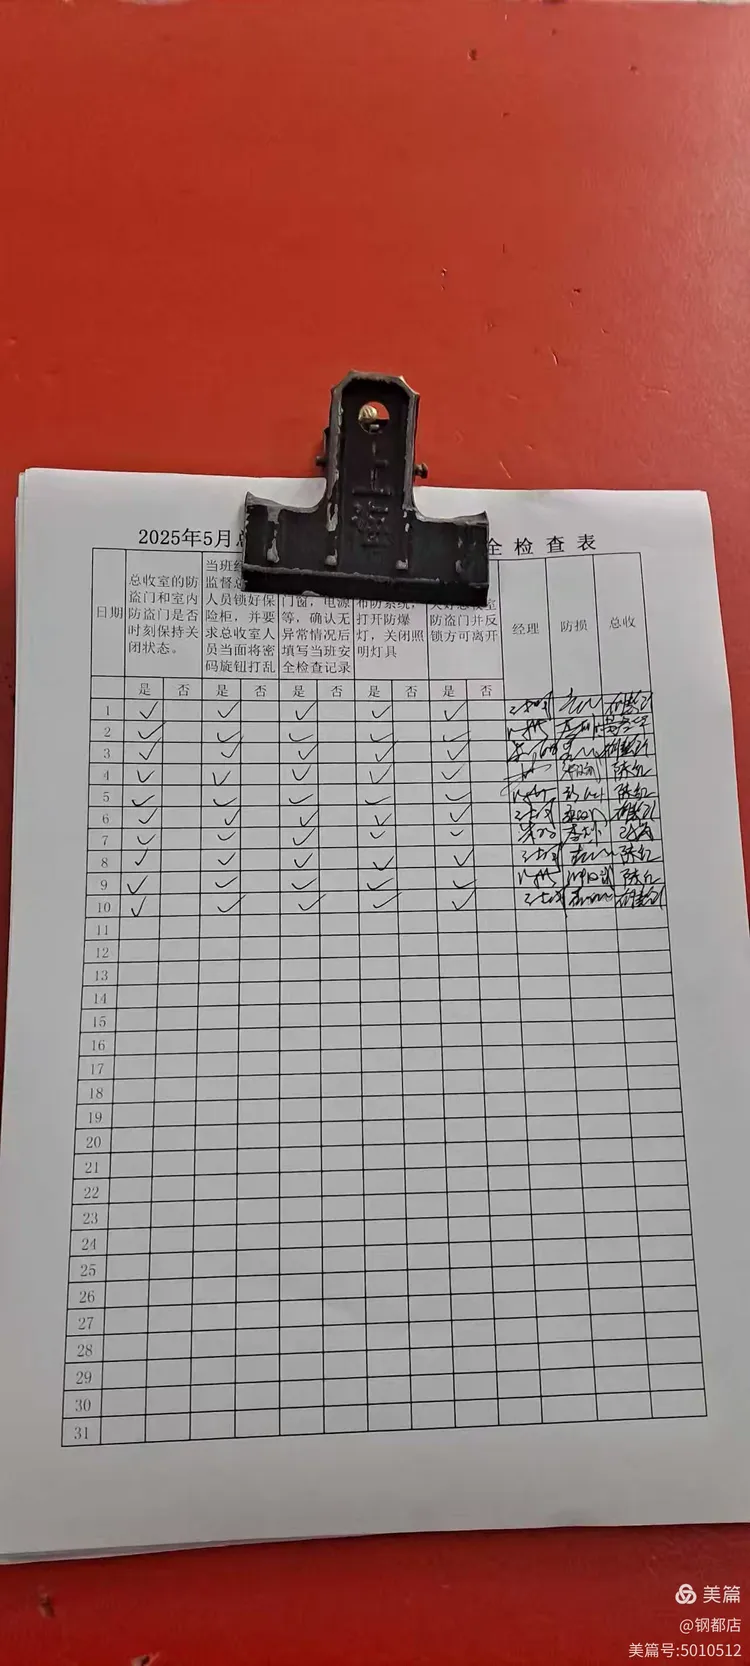 上海
2025年5月
全检查表
日期
总收室的防
盗门和室内
防盗门是否
时刻保持关
闭状态。
当班经
监督总
人员锁好保
险柜，并要
求总收室人
员当面将密
码旋钮打乱
门窗，电源
等，确认无
异常情况后
填写当班安
全检查记录
布防系统，
打开防爆
灯，关闭照
明灯具
关好总收室
防盗门并反
锁方可离开
经理
防损
总收
是 否 是 否 是 否 是 否 是 否
1 ✓ ✓ ✓ ✓ ✓
2 ✓ ✓ ✓ ✓ ✓
3 ✓ ✓ ✓ ✓ ✓
4 ✓ ✓ ✓ ✓ ✓ 陈红
5 ✓ ✓ ✓ ✓ ✓ 陈红
6 ✓ ✓ ✓ ✓ ✓
7 ✓ ✓ ✓ ✓ ✓
8 ✓ ✓ ✓ ✓ ✓ 陈红
9 ✓ ✓ ✓ ✓ ✓ 陈红
10 ✓ ✓ ✓ ✓ ✓
11
12
13
14
15
16
17
18
19
20
21
22
23
24
25
26
27
28
29
30
31
美篇
@钢都店
美篇号:5010512